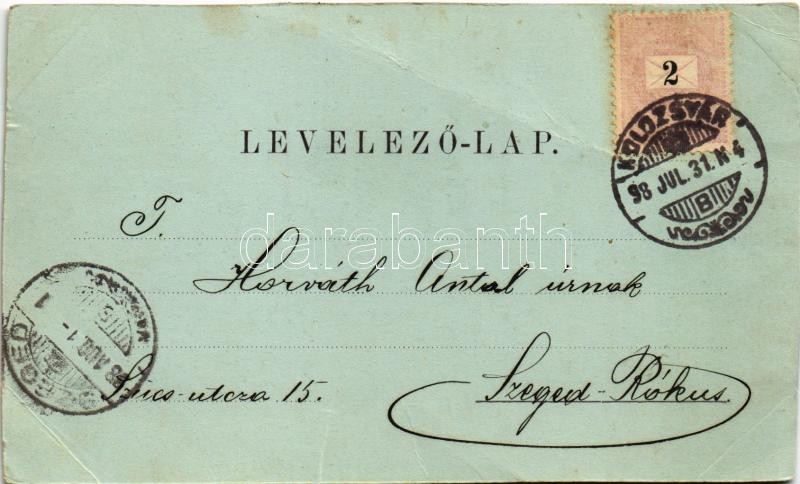 2
KOLOZSVÁR
98 JUL. 31. N 4
B
LEVELEZŐ-LAP.
T.
Horváth Antal úrnak
darabanth
SZEGED
98 AUG. 1
Szücs-utcza 15.
Szeged-Rókus.